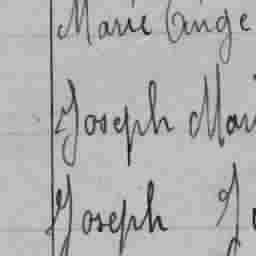 Marie Ange
Joseph Mari
Joseph